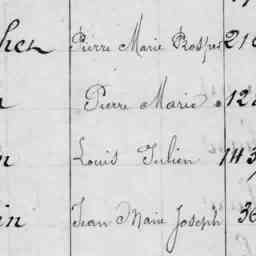 hez Pierre Marie Prosper 216
n Pierre Marie 12
n Louis Julien 143
in Jean Marie Joseph 36